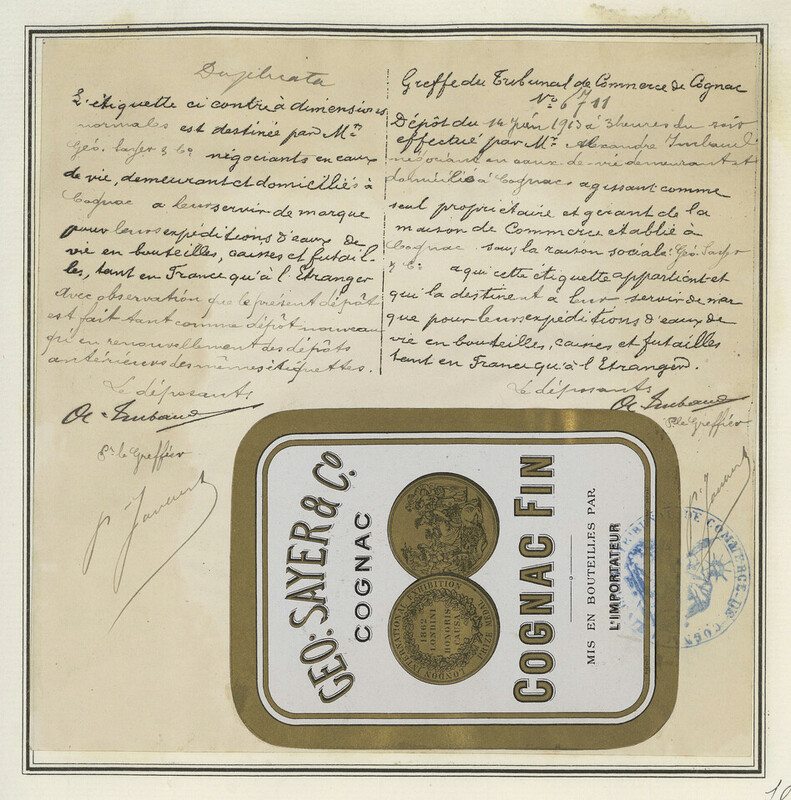 Duplicata
L'étiquette ci contre à dimensions
normales est destinée par Mrs
Géo. Sayer & Co négociants en eaux
de vie, demeurant et domiciliés à
Cognac a leur servir de marque
pour leurs expéditions d'eaux de
vie en bouteilles, caisses et futail-
les, tant en France qu'à l'Etranger
avec observation que le présent dépôt
est fait tant comme dépôt nouveau
qu'en renouvellement des dépôts
antérieurs des mêmes étiquettes.
Le déposants
Pr le Greffier
Greffe du Tribunal de Commerce de Cognac
No 6711
Dépôt du 14 Juin 1913 à 3 heures du soir
effectué par Mr Alexandre Imbaud
négociant en eaux-de-vie demeurant et
domicilié à Cognac agissant comme
seul propriétaire et gérant de la
maison de Commerce établie à
Cognac sous la raison sociale: Géo. Sayer
& Co a qui cette étiquette appartient et
qui la destinent à leur servir de mar
que pour leurs expéditions d'eaux de
vie en bouteilles, caisses et futailles
tant en France qu'à l'Etranger.
Le déposants
Pr le Greffier
GEO: SAYER & Co.
COGNAC
LONDON INTERNATIONAL EXHIBITION PRIZE MEDAL
1862
LONDINI
HONORIS
CAUSA
COGNAC FIN
MIS EN BOUTEILLES PAR
L'IMPORTATEUR
DE COMMERCE DE